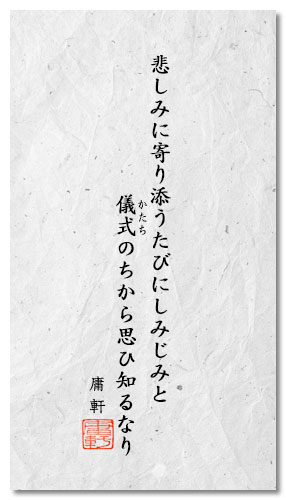 悲しみに寄り添うたびにしみじみと
儀式のちから思ひ知るなり
かたち
庸軒
庸軒